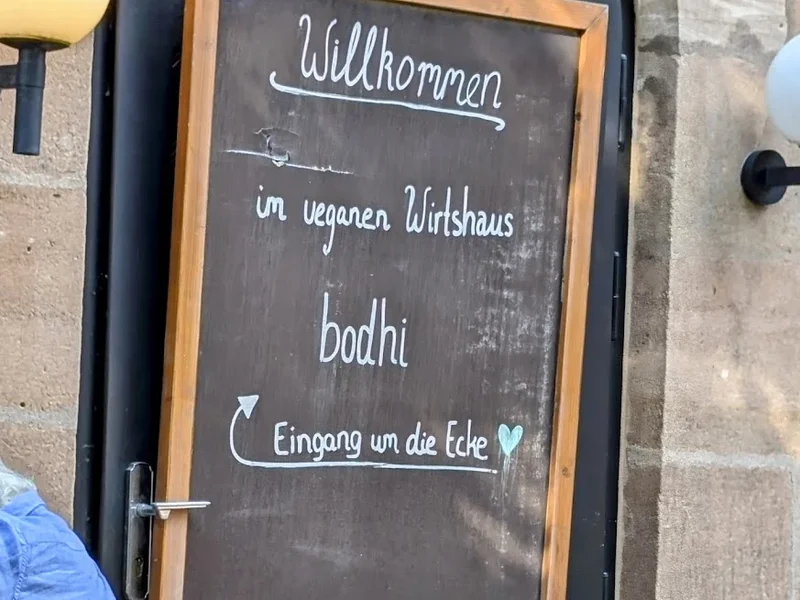 Willkommen
im veganen Wirtshaus
bodhi
Eingang um die Ecke